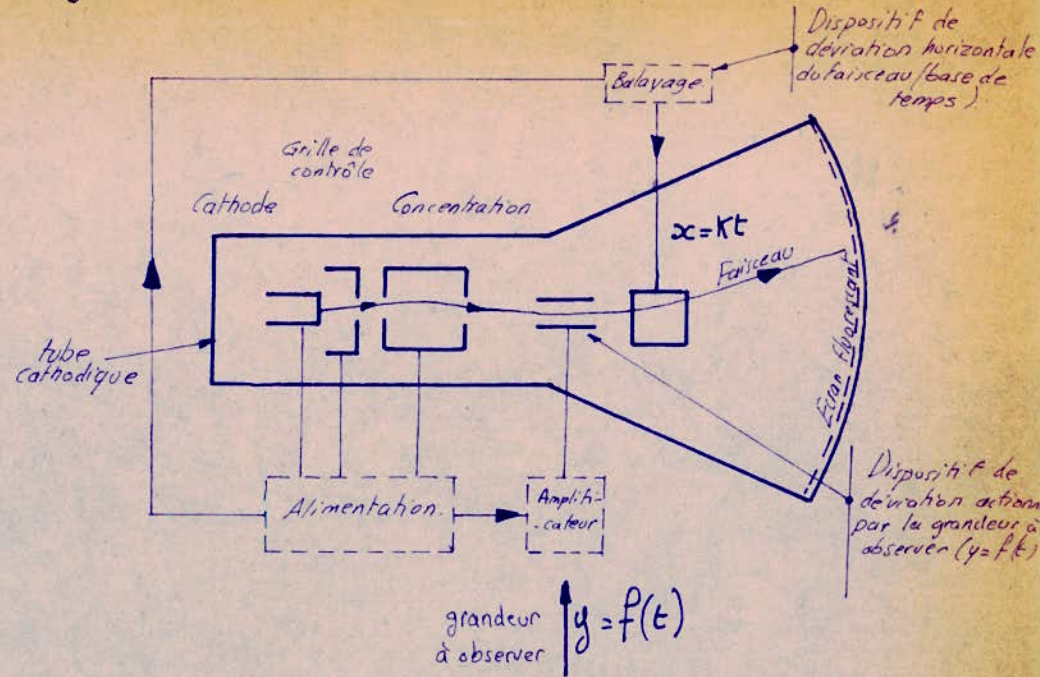 Dispositif de
déviation horizontale
du faisceau (base de
temps).
Balayage.
Grille de
contrôle
Cathode
Concentration
x=Kt
Faisceau
Ecran fluorescent
tube
cathodique
Alimentation.
Amplifi-
-cateur
Dispositif de
déviation actionn
par la grandeur à
observer (y=f(t)
grandeur
à observer
y=f(t)